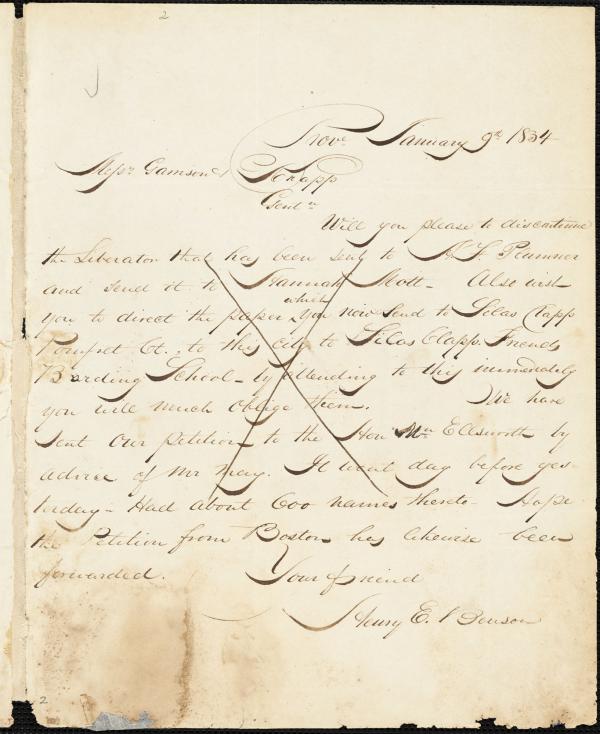 2
Prov. January 9th 1834
Messrs Garrison & Knapp
Gentn
Will you please to discontinue
the Liberator that has been sent to A. F. Plummer
and send it to Hannah Mott - Also wish
which
you to direct the paper you now send to Silas Clapp
Pomfret Ct. to this City to Silas Clapp. Friends
Boarding School - by attending to this immediately
you will much oblige them. We have
sent our petition to the Hon Mr. Ellsworth by
advice of Mr May. It went day before yes-
terday - Had about 600 names thereto - Hope
the Petition from Boston has likewise been
forwarded. Your friend
Henry E. Benson
2